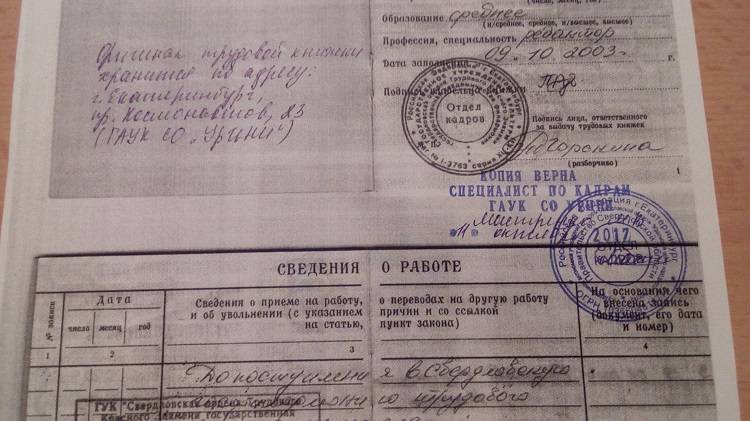 (число, месяц, год)
Образование среднее
(н/среднее, среднее, н/высшее, высшее)
Профессия, специальность редактор
Дата заполнения 09.10.2003 г.
Подпись владельца книжки
Оригинал трудовой книжки
хранится по адресу:
г. Екатеринбург,
пр. Космонавтов, 23
(ГАУК СО "УрЦНИ")
Отдел
кадров
Подпись лица, ответственного
за выдачу трудовых книжек
(разборчиво)
КОПИЯ ВЕРНА
СПЕЦИАЛИСТ ПО КАДРАМ
ГАУК СО УРЦНИ
2017
СВЕДЕНИЯ О РАБОТЕ
№ записи
Дата
число месяц год
Сведения о приеме на работу, о переводах на другую работу
и об увольнении (с указанием причин и со ссылкой
на статью, пункт закона)
На основании чего
внесена запись
(документ, его дата
и номер)
1 2 3 4
До поступления в Свердловскую
трудового
ГУК "Свердловская ордена Трудового
Красного Знамени государственная